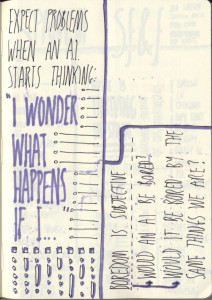 EXPECT PROBLEMS
WHEN AN A.I.
STARTS THINKING:
"I WONDER
WHAT
HAPPENS
IF I..."
BOREDOM IS SUBJECTIVE
WOULD AN AI BE BORED?
WOULD IT BE BORED BY THE
SAME THINGS WE ARE?